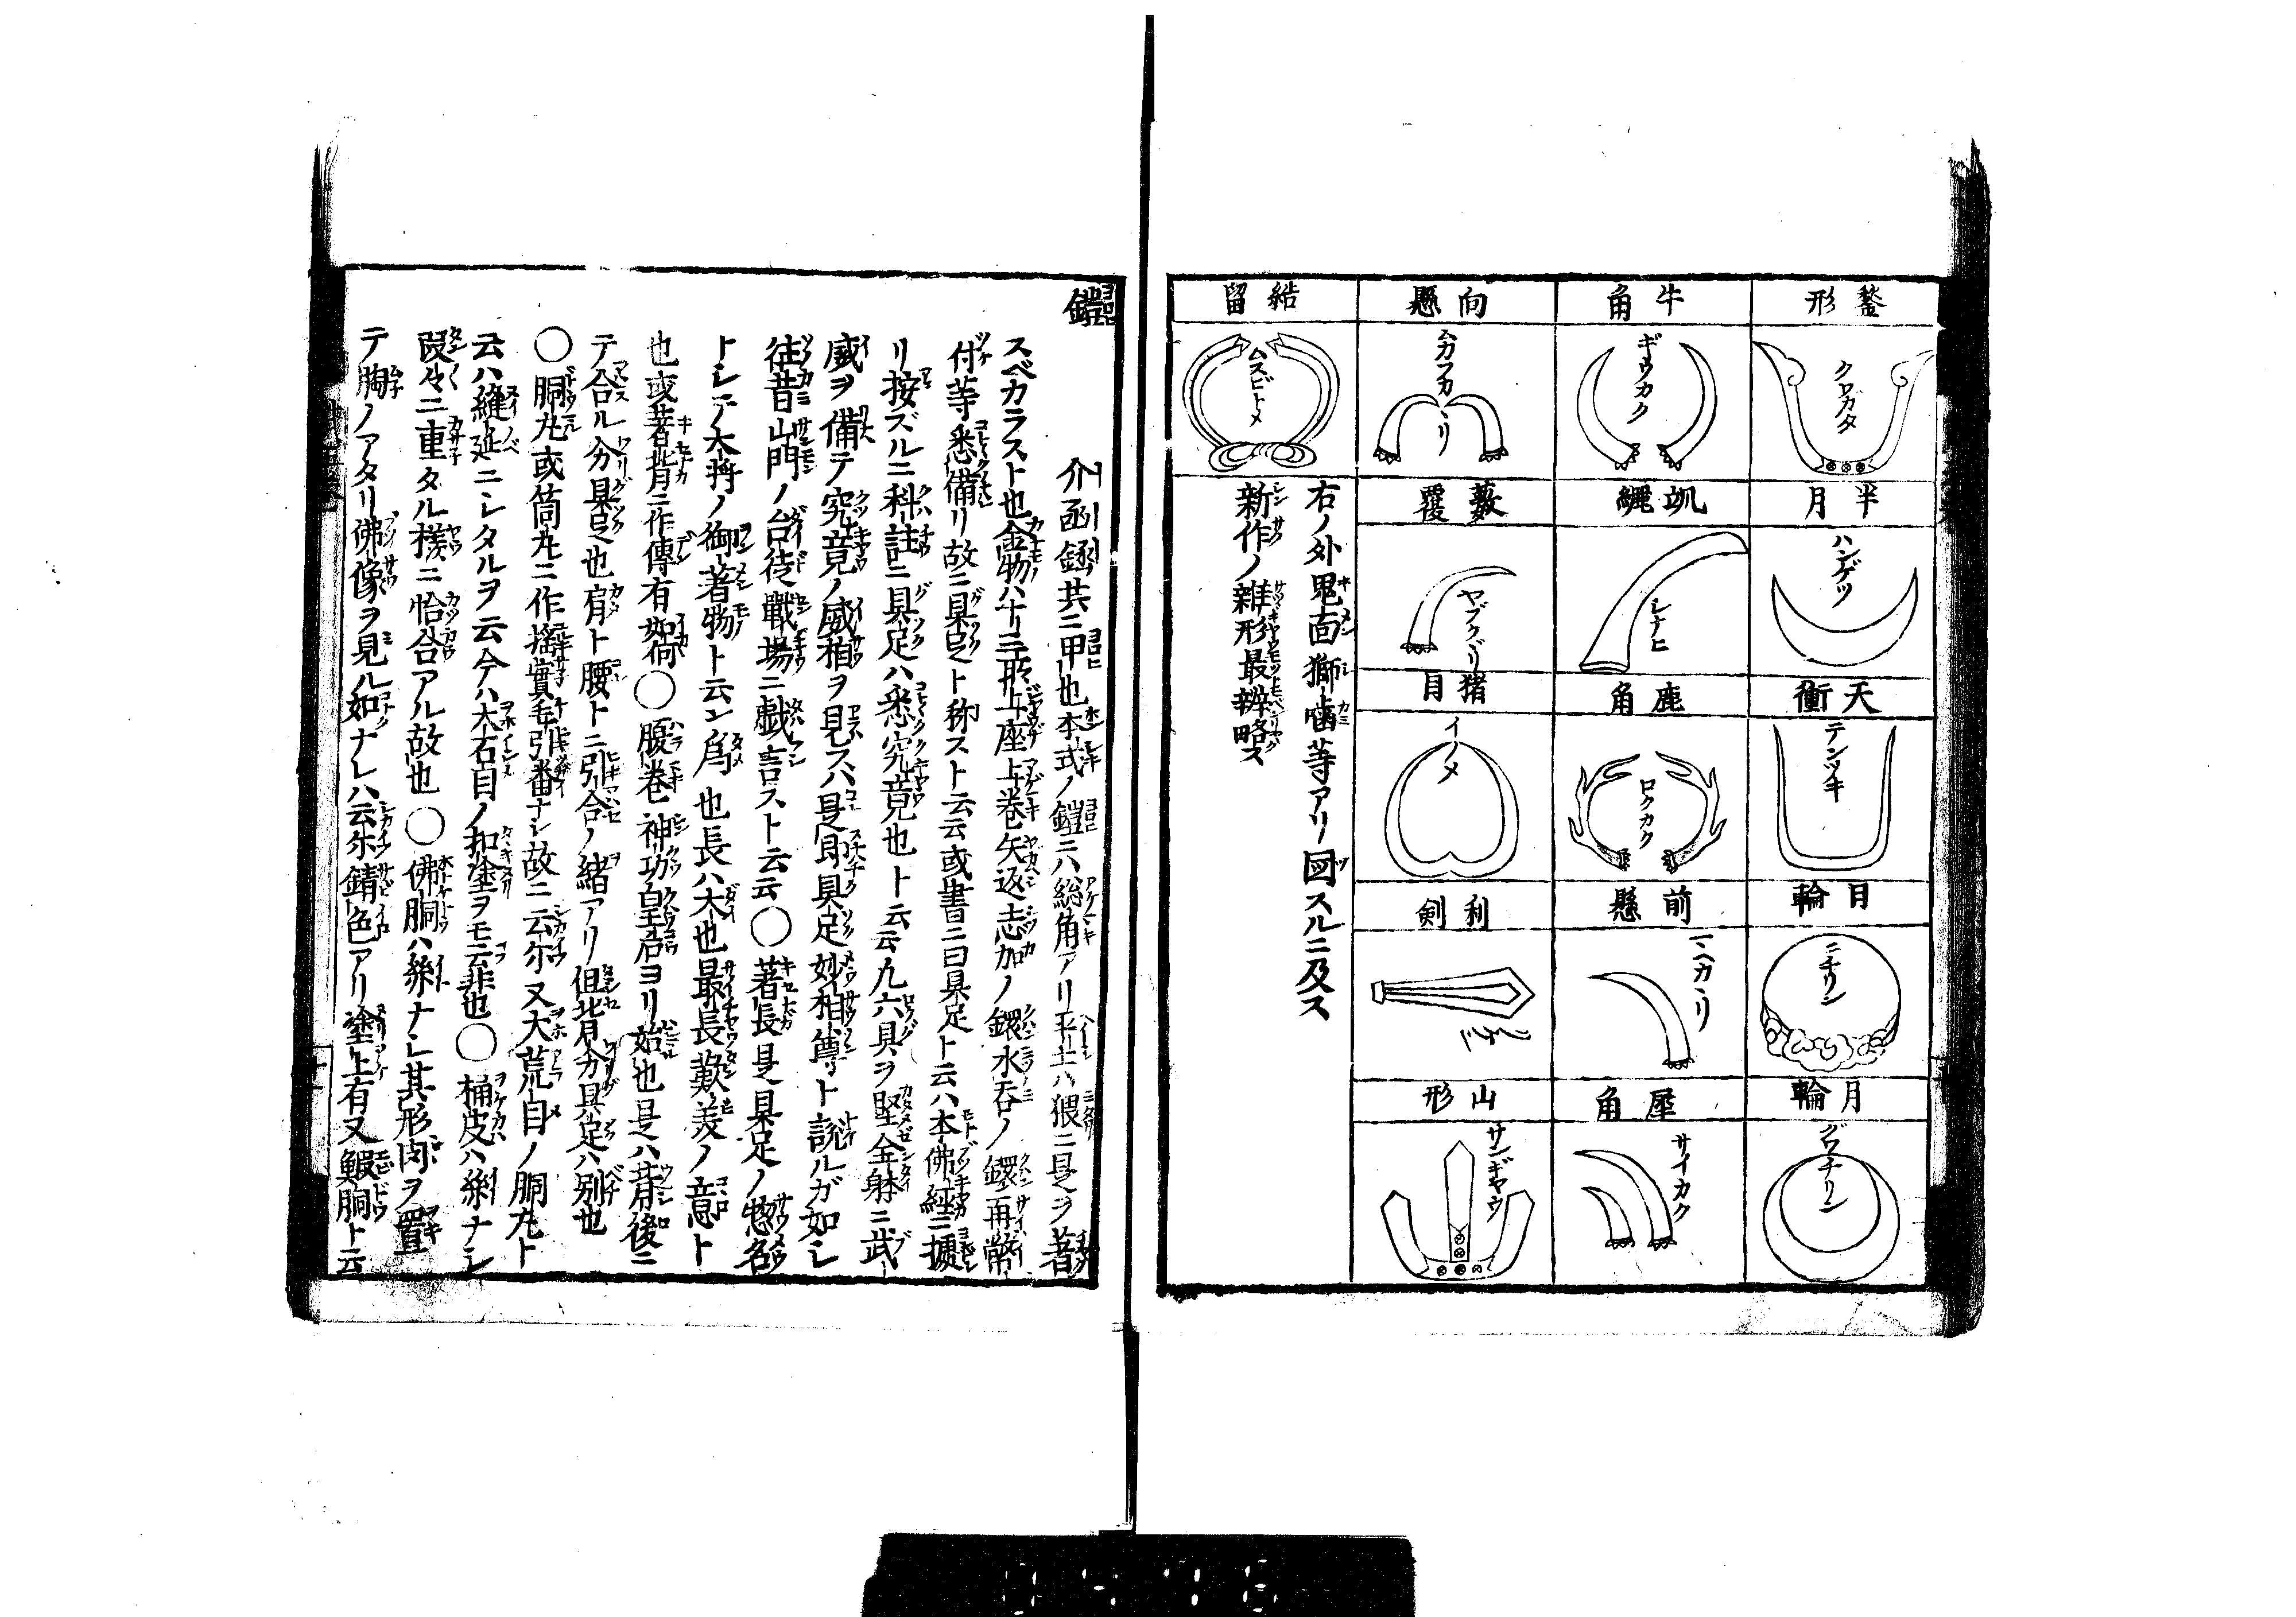 鍪形
クワガタ
牛角
ギウカク
向懸
ムカフカヽリ
結留
ムスビトメ
半月
ハンゲツ
シナヒ
藪覆
ヤブクヾリ
天衝
テンツキ
鹿角
ロクカク
猪目
イノメ
日輪
ニチリン
前懸
利剣
月輪
グワチリン
犀角
サイカク
山形
サンギヤウ
右ノ外鬼面獅噛等アリ図スルニ及ス
新作ノ雑形最辨略ス
鎧
介函鎹共ニ甲也本式ノ鎧ニハ総角アリ平士ハ猥ニ是ヲ著
スベカラスト也金物ハ十三所上座上巻矢返志加ノ鐶水呑ノ鐶再幣
付等悉備リ故ニ具足ト称スト云云或書ニ曰具足ト云ハ本佛經ニ據
リ按ズルニ科註ニ具足ハ悉究竟也ト云云九六具ヲ堅全躰ニ武
威ヲ備テ究竟ノ威相ヲ見スハ是即具足妙相尊ト説ルガ如シ
往昔山門ノ台徒戰場ニ戯言スト云云〇著長是具足ノ惣名
トシテ大将ノ御著物ト云ン為也長ハ大也最長歎美ノ意ト
也或著背ニ作傳有如何〇腹巻神功皇后ヨリ始也是ハ背後ニ
テ合ル分具足也肩ト腰トニ引合ノ緒アリ但背分具足ハ別也
〇胴丸或筒丸ニ作揺實毛引番ナシ故ニ云尓又大荒目ノ胴丸ト
云ハ縫延ニシタルヲ云今ハ大石目ノ扣塗ヲモ云非也〇桶皮ハ糸ナシ
段々ニ重タル様ニ恰合アル故也〇佛胴ハ糸ナシ其形肉ヲ置
テ胸ノアタリ佛像ヲ見ル如ナレハ云尓錆色アリ塗上有又鰕胴ト云